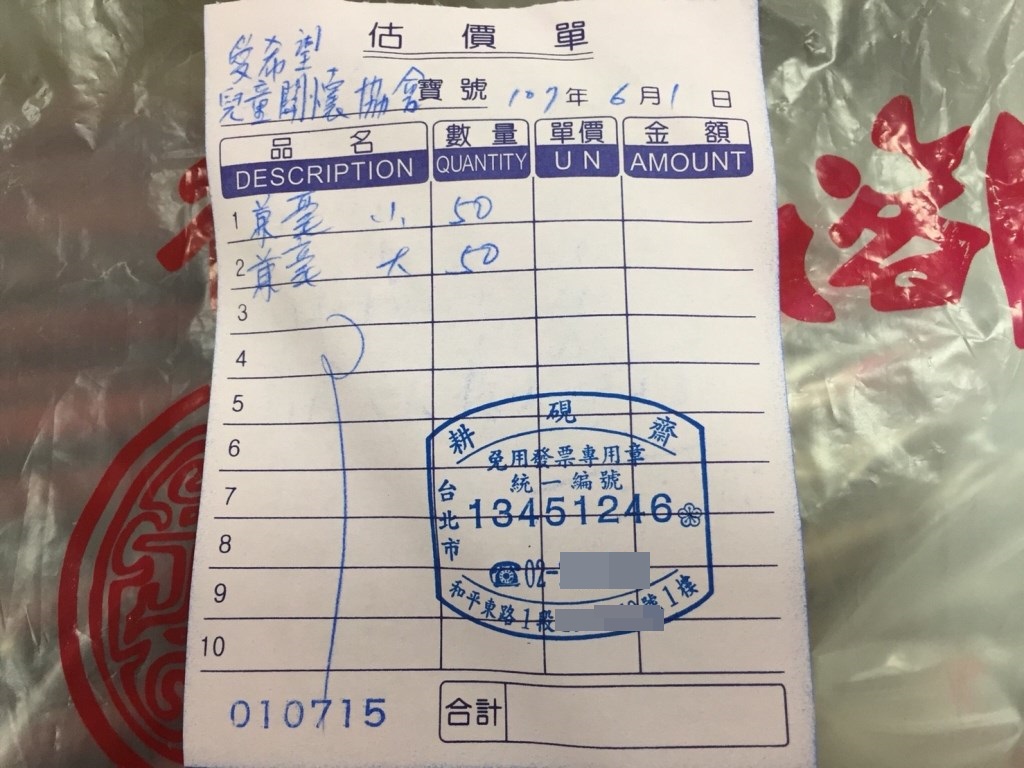 估價單
愛希望
兒童關懷協會寶號 107年 6月1日
品名 數量 單價 金額
DESCRIPTION QUANTITY U N AMOUNT
1 兼毫 小 50
2 兼毫 大 50
3
4
5
6
7
8
9
10
耕硯齋
免用發票專用章
統一編號
台北市
13451246
☎02-
和平東路1段 號1樓
010715
合計